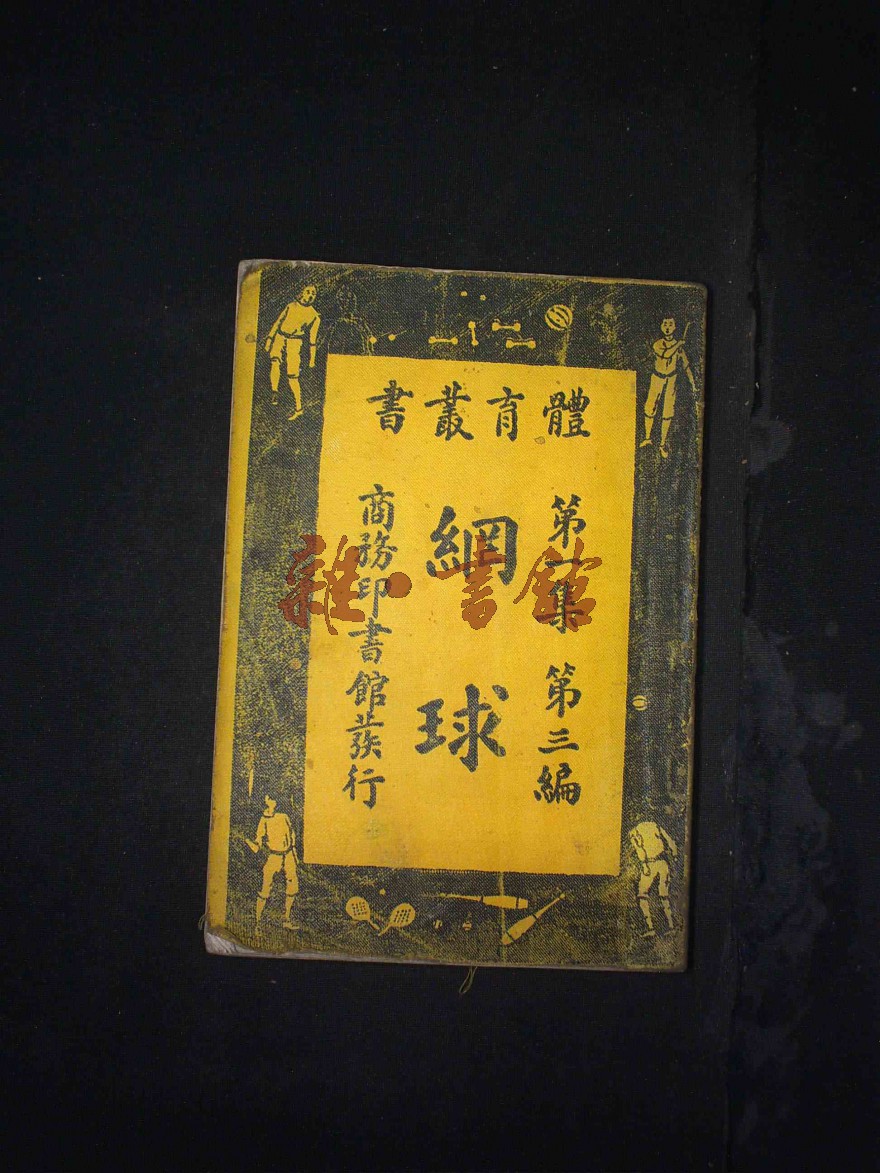 體育叢書
第一集 第三編
網球
商務印書館發行
雜·書館